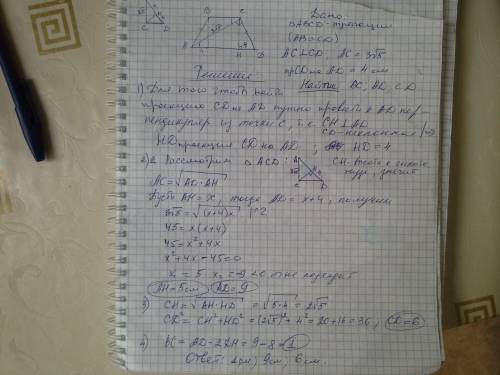 Дано:
ABCD - трапеция
(AB=CD)
AC⊥CD, AC = 3√5
прCD на AD = 4 см
Решение
Найти: BC, AD, CD
1) Для того чтобы найти
проекцию CD на AD нужно провести к AD пер-
пендикуляр из точки C, т.е. CH⊥AD
CD - наклонная | =>
HD проекция CD на AD ; HD = 4
2) Рассмотрим △ACD:
CH - высота
AC = √AD·AH
Пусть AH = x, тогда AD = x+4, получим
3√5 = √(x+4)x |^2
45 = x(x+4)
45 = x²+4x
x²+4x-45=0
x₁ = 5 x₂ = -9 <0 не подходит
AH = 5 см, AD = 9
3) CH = √AH·HD = √5·4 = 2√5
CD² = CH²+HD² = (2√5)²+4² = 20+16 = 36, CD = 6
4) BC = AD-2DH = 9-8 = 1
Ответ: 1 см, 9 см, 6 см.